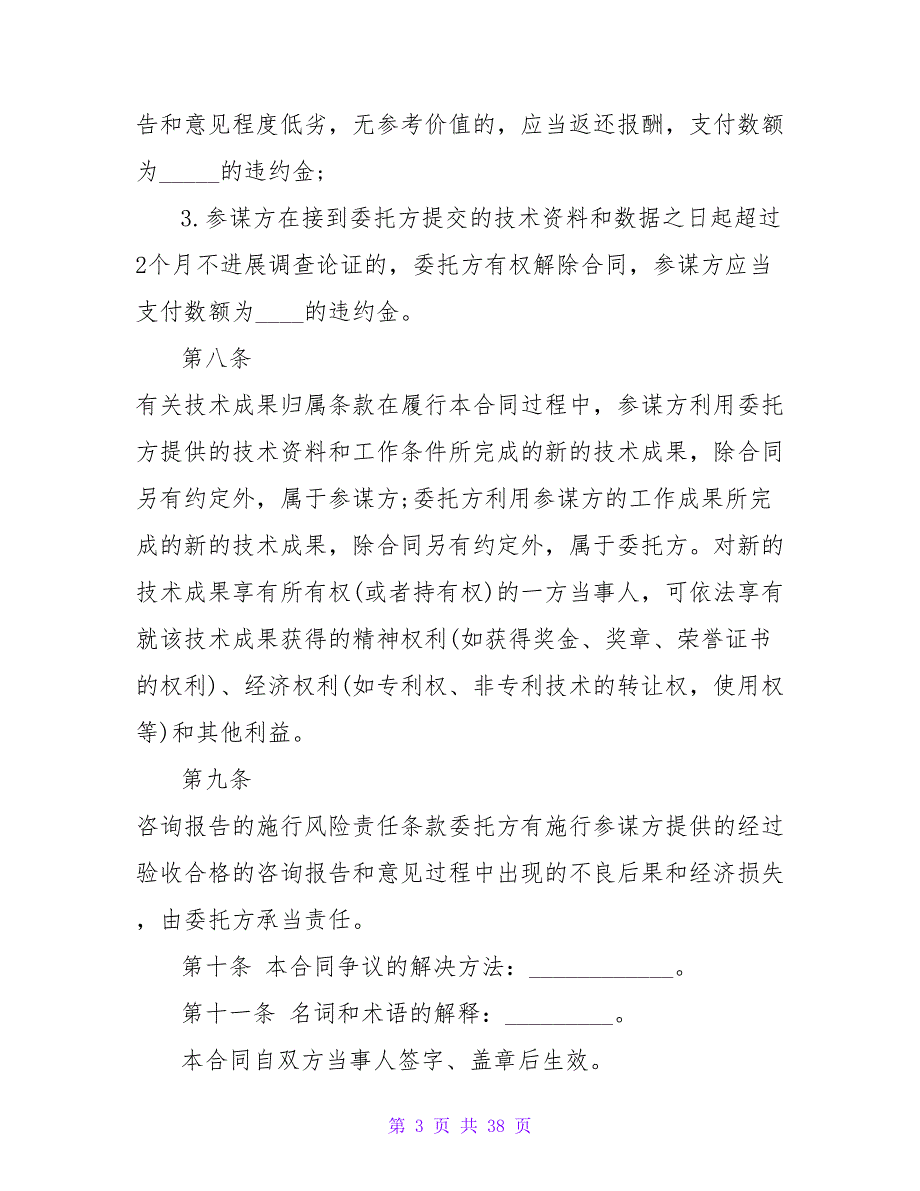 告和意见程度低劣，无参考价值的，应当返还报酬，支付数额
为_____的违约金;
3.参谋方在接到委托方提交的技术资料和数据之日起超过
2个月不进展调查论证的，委托方有权解除合同，参谋方应当
支付数额为____的违约金。
第八条
有关技术成果归属条款在履行本合同过程中，参谋方利用委托
方提供的技术资料和工作条件所完成的新的技术成果，除合同
另有约定外，属于参谋方;委托方利用参谋方的工作成果所完
成的新的技术成果，除合同另有约定外，属于委托方。对新的
技术成果享有所有权(或者持有权)的一方当事人，可依法享有
就该技术成果获得的精神权利(如获得奖金、奖章、荣誉证书
的权利)、经济权利(如专利权、非专利技术的转让权，使用权
等)和其他利益。
第九条
咨询报告的施行风险责任条款委托方有施行参谋方提供的经过
验收合格的咨询报告和意见过程中出现的不良后果和经济损失
，由委托方承当责任。
第十条 本合同争议的解决方法：____________。
第十一条 名词和术语的解释：_________。
本合同自双方当事人签字、盖章后生效。
第 3 页 共 38 页